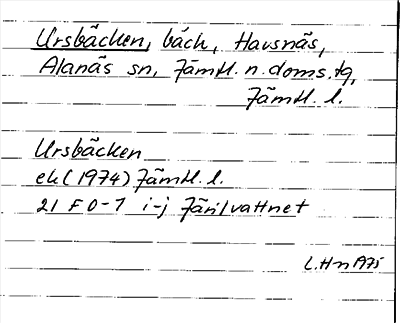 Ursbäcken, bäck, Havsnäs,
Alanäs sn, Jämtl. n. doms. tg,
Jämtl. l.
Ursbäcken
ek (1974) Jämtl. l.
21 F 0-1 i-j Järilvattnet
L.Hn 1975